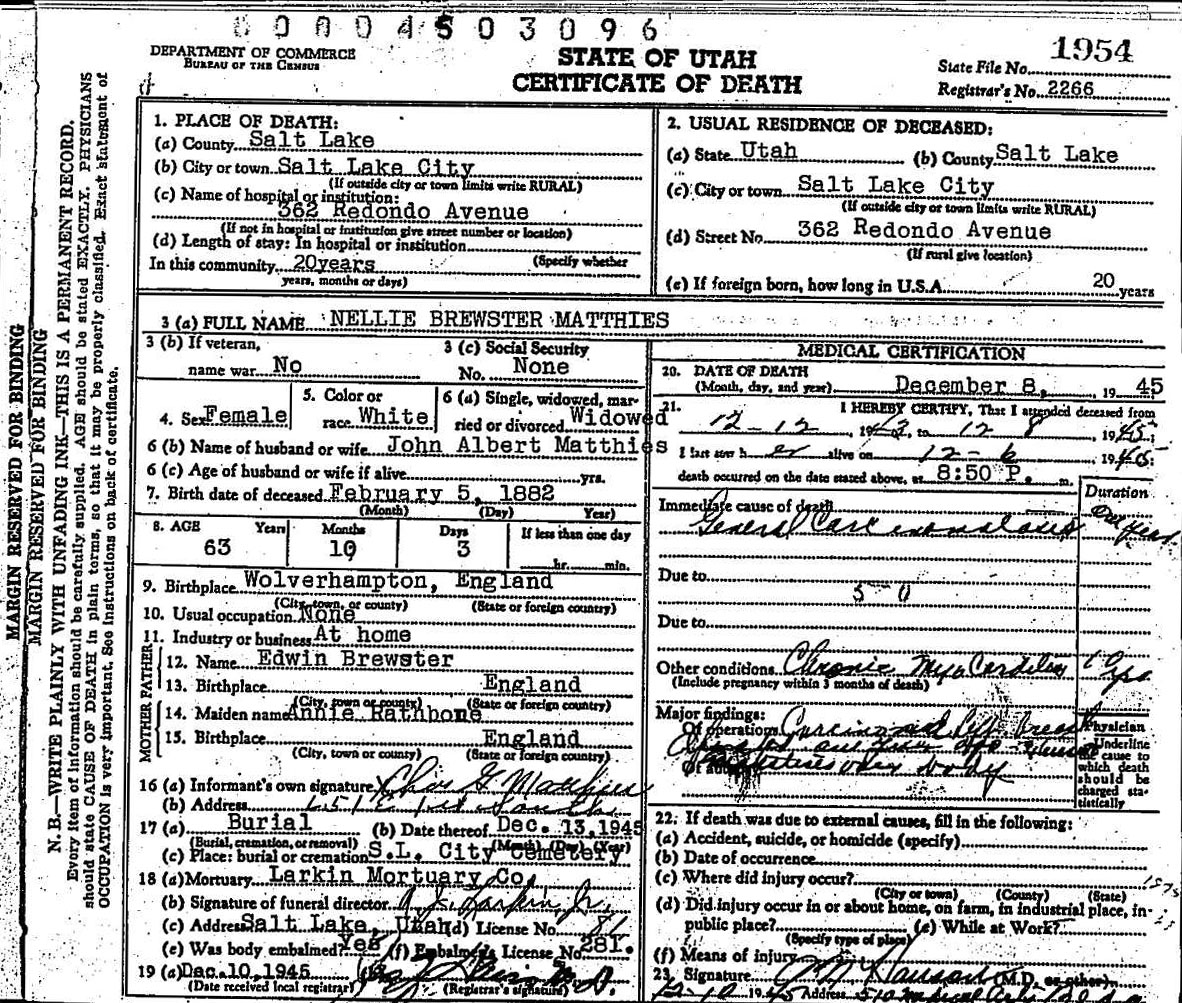 0 0 0 0 4 5 0 3 0 9 6
1954
DEPARTMENT OF COMMERCE
BUREAU OF THE CENSUS
STATE OF UTAH
CERTIFICATE OF DEATH
State File No.
Registrar's No. 2266
MARGIN RESERVED FOR BINDING
MARGIN RESERVED FOR BINDING
N. B.—WRITE PLAINLY WITH UNFADING INK—THIS IS A PERMANENT RECORD.
Every item of information should be carefully supplied. AGE should be stated EXACTLY. PHYSICIANS
should state CAUSE OF DEATH in plain terms, so that it may be properly classified. Exact statement of
OCCUPATION is very important. See instructions on back of certificate.
1. PLACE OF DEATH:
(a) County Salt Lake
(b) City or town Salt Lake City
(If outside city or town limits write RURAL)
(c) Name of hospital or institution:
362 Redondo Avenue
(If not in hospital or institution give street number or location)
(d) Length of stay: In hospital or institution
(Specify whether
In this community 20years
years, months or days)
2. USUAL RESIDENCE OF DECEASED:
(a) State Utah (b) County Salt Lake
(c) City or town Salt Lake City
(If outside city or town limits write RURAL)
(d) Street No. 362 Redondo Avenue
(If rural give location)
(e) If foreign born, how long in U.S.A. 20 years
3 (a) FULL NAME NELLIE BREWSTER MATTHIES
3 (b) If veteran,
name war No
3 (c) Social Security
No. None
4. Sex Female
5. Color or
race White
6 (a) Single, widowed, mar-
ried or divorced Widowed
6 (b) Name of husband or wife John Albert Matthies
6 (c) Age of husband or wife if alive yrs.
7. Birth date of deceased February 5, 1882
(Month) (Day) Year)
8. AGE Years Months Days If less than one day
63 10 3 hr. min.
9. Birthplace Wolverhampton, England
(City, town, or county) (State or foreign country)
10. Usual occupation None
11. Industry or business At home
MOTHER FATHER
12. Name Edwin Brewster
13. Birthplace England
(City, town or county) (State or foreign country)
14. Maiden name Annie Rathbone
15. Birthplace England
(City, town or county) (State or foreign country)
16 (a) Informant's own signature Matthies
(b) Address South
17 (a) Burial (b) Date thereof Dec. 13, 1945
(Burial, cremation, or removal) (Month) (Day) (Year)
(c) Place: burial or cremation S.L. City Cemetery
18 (a) Mortuary Larkin Mortuary Co.
(b) Signature of funeral director Larkin, Jr.
(c) Address Salt Lake, Utah (d) License No.
(e) Was body embalmed? Yes (f) Embalmer's License No. 281.
19 (a) Dec. 10, 1945 (b) M.D.
(Date received local registrar) (Registrar's signature)
MEDICAL CERTIFICATION
20. DATE OF DEATH
(Month, day, and year) December 8, 19 45
21. I HEREBY CERTIFY, That I attended deceased from
12-12, 1943, to 12 8, 1945;
I last saw her alive on 12-6 1945;
death occurred on the date stated above, at 8:50 P. m.
Duration
Immediate cause of death
General Carcinomatosis One year
Due to
5 0
Due to
Other conditions Chronic Myocarditis 10 yrs
(Include pregnancy within 3 months of death)
Major findings:
Of operations Carcinoma left breast
Of autopsy body
Physician
Underline
the cause to
which death
should be
charged sta-
tistically
22. If death was due to external causes, fill in the following:
(a) Accident, suicide, or homicide (specify)
(b) Date of occurrence
(c) Where did injury occur?
(City or town) (County) (State)
(d) Did injury occur in or about home, on farm, in industrial place, in
public place? (e) While at Work?
(Specify type of place)
(f) Means of injury
23. Signature (M.D. or other)
12-10 1945 Address 510